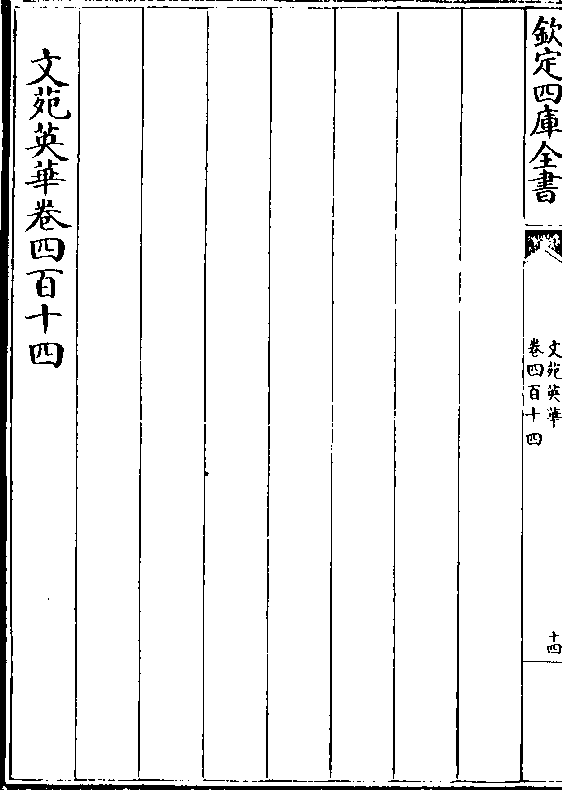 欽定四庫全書
文苑英華
卷四百十四
十四
文苑英華卷四百十四